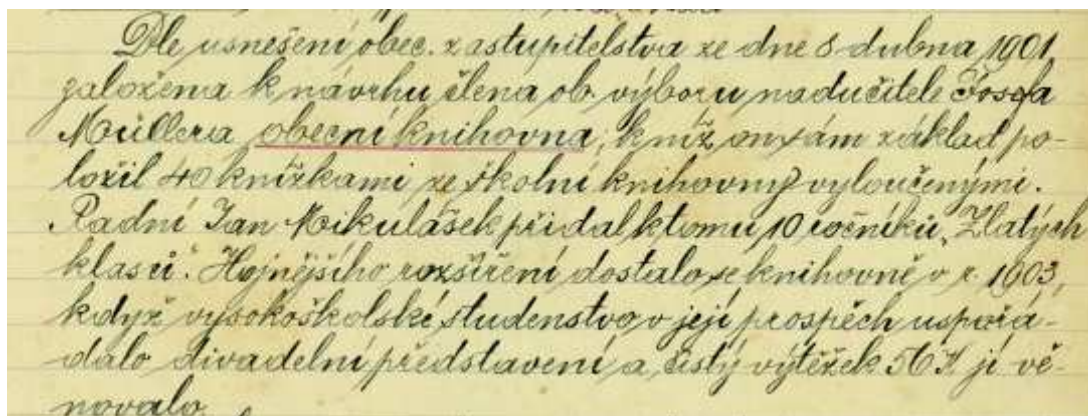 Dle usnešení obec. zastupitelstva ze dne 8 dubna 1901
založena k návrhu člena ob. výboru nadučitele Josefa
Müllera obecní knihovna, k níž on sám základ po-
ložil 40 knížkami ze školní knihovny vyloučenými.
Radní Jan Mikulášek přidal k tomu 10 ročníků „Zlatých
klasů“. Hojnějšího rozšíření dostalo se knihovně v r. 1903,
když vysokoškolské studenstvo v její prospěch uspořá-
dalo divadelní představení a čistý výtěžek 56 K jí vě-
novalo.